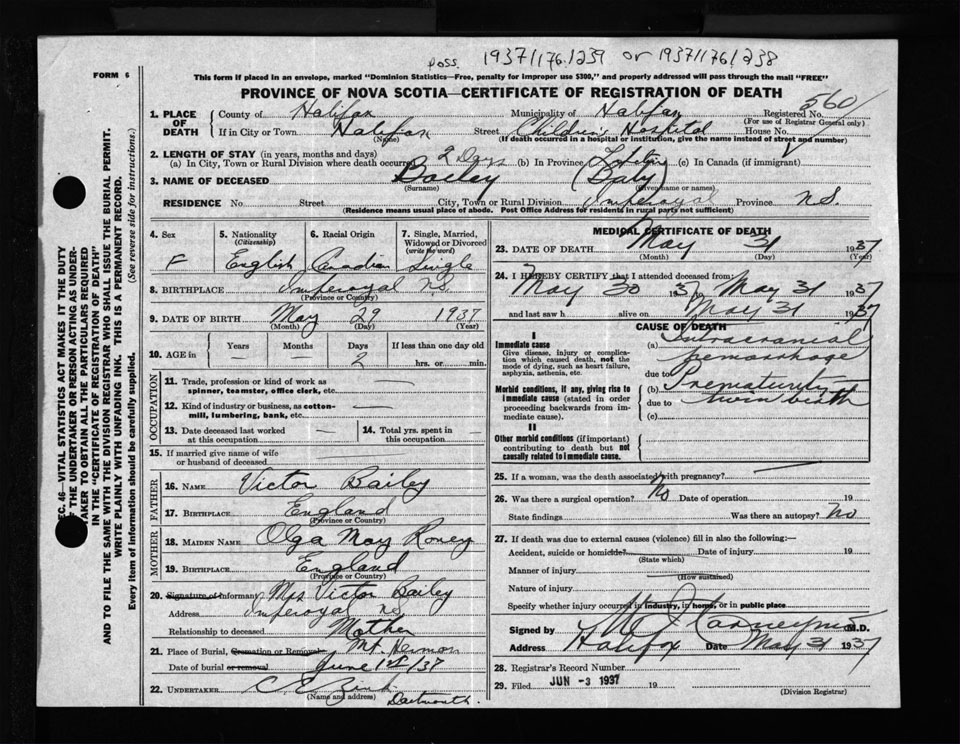 poss. 1937/176/239 or 1937/176/238
FORM 6
This form if placed in an envelope, marked "Dominion Statistics—Free, penalty for improper use $300," and properly addressed will pass through the mail "FREE"
PROVINCE OF NOVA SCOTIA—CERTIFICATE OF REGISTRATION OF DEATH
1. PLACE OF DEATH County of Halifax Municipality of Halifax Registered No. 560
(For use of Registrar General only)
If in City or Town Halifax Street Children's Hospital House No.
(Name) (If death occurred in a hospital or institution, give the name instead of street and number)
2. LENGTH OF STAY (in years, months and days)
(a) In City, Town or Rural Division where death occurred 2 Days (b) In Province Lifetime (c) In Canada (if immigrant)
3. NAME OF DECEASED Bailey (Baby)
(Surname) (Given name or names)
RESIDENCE No. Street City, Town or Rural Division Imperoyal Province N.S.
(Residence means usual place of abode. Post Office Address for residents in rural parts not sufficient)
4. Sex 5. Nationality (Citizenship) 6. Racial Origin 7. Single, Married, Widowed or Divorced (write the word)
F English Canadian Single
8. BIRTHPLACE Imperoyal N.S.
(Province or Country)
9. DATE OF BIRTH May 29 1937
(Month) (Day) (Year)
10. AGE in Years Months Days If less than one day old
— — 2 hrs. or min.
OCCUPATION
11. Trade, profession or kind of work as spinner, teamster, office clerk, etc. —
12. Kind of industry or business, as cotton-mill, lumbering, bank, etc. —
13. Date deceased last worked at this occupation — 14. Total yrs. spent in this occupation —
15. If married give name of wife or husband of deceased
FATHER
16. NAME Victor Bailey
17. BIRTHPLACE England
(Province or Country)
MOTHER
18. MAIDEN NAME Olga May Roney
19. BIRTHPLACE England
(Province or Country)
20. Signature of Informant Mrs Victor Bailey
Address Imperoyal N.S.
Relationship to deceased Mother
21. Place of Burial, Cremation or Removal Mt. Hermon
Date of burial or removal June 1st/37
22. UNDERTAKER C. E. Zink
(Name and address) Dartmouth.
MEDICAL CERTIFICATE OF DEATH
23. DATE OF DEATH May 31 1937
(Month) (Day) (Year)
24. I HEREBY CERTIFY that I attended deceased from
May 30 1937 May 31 1937
and last saw h alive on May 31 1937
CAUSE OF DEATH
I
Immediate cause
Give disease, injury or complication which caused death, not the mode of dying, such as heart failure, asphyxia, asthenia, etc.
(a) Intracranial hemorrhage
due to
Morbid conditions, if any, giving rise to immediate cause (stated in order proceeding backwards from immediate cause).
(b) Prematurity
due to twin birth
(c)
II
Other morbid conditions (if important) contributing to death but not causally related to immediate cause.
25. If a woman, was the death associated with pregnancy? —
26. Was there a surgical operation? No Date of operation 19
State findings Was there an autopsy? No
27. If death was due to external causes (violence) fill in also the following:—
Accident, suicide or homicide? Date of injury 19
(State which)
Manner of injury
(How sustained)
Nature of injury
Specify whether injury occurred in industry, in home, or in public place
Signed by M.D.
Address Halifax Date May 31 1937
28. Registrar's Record Number
29. Filed JUN -3 1937 19
(Division Registrar)
EC. 46—VITAL STATISTICS ACT MAKES IT THE DUTY
OF THE UNDERTAKER OR PERSON ACTING AS UNDER-
TAKER TO OBTAIN ALL THE PARTICULARS REQUIRED
IN THE "CERTIFICATE OF REGISTRATION OF DEATH"
AND TO FILE THE SAME WITH THE DIVISION REGISTRAR WHO SHALL ISSUE THE BURIAL PERMIT.
WRITE PLAINLY WITH UNFADING INK. THIS IS A PERMANENT RECORD.
Every item of information should be carefully supplied. (See reverse side for instructions.)